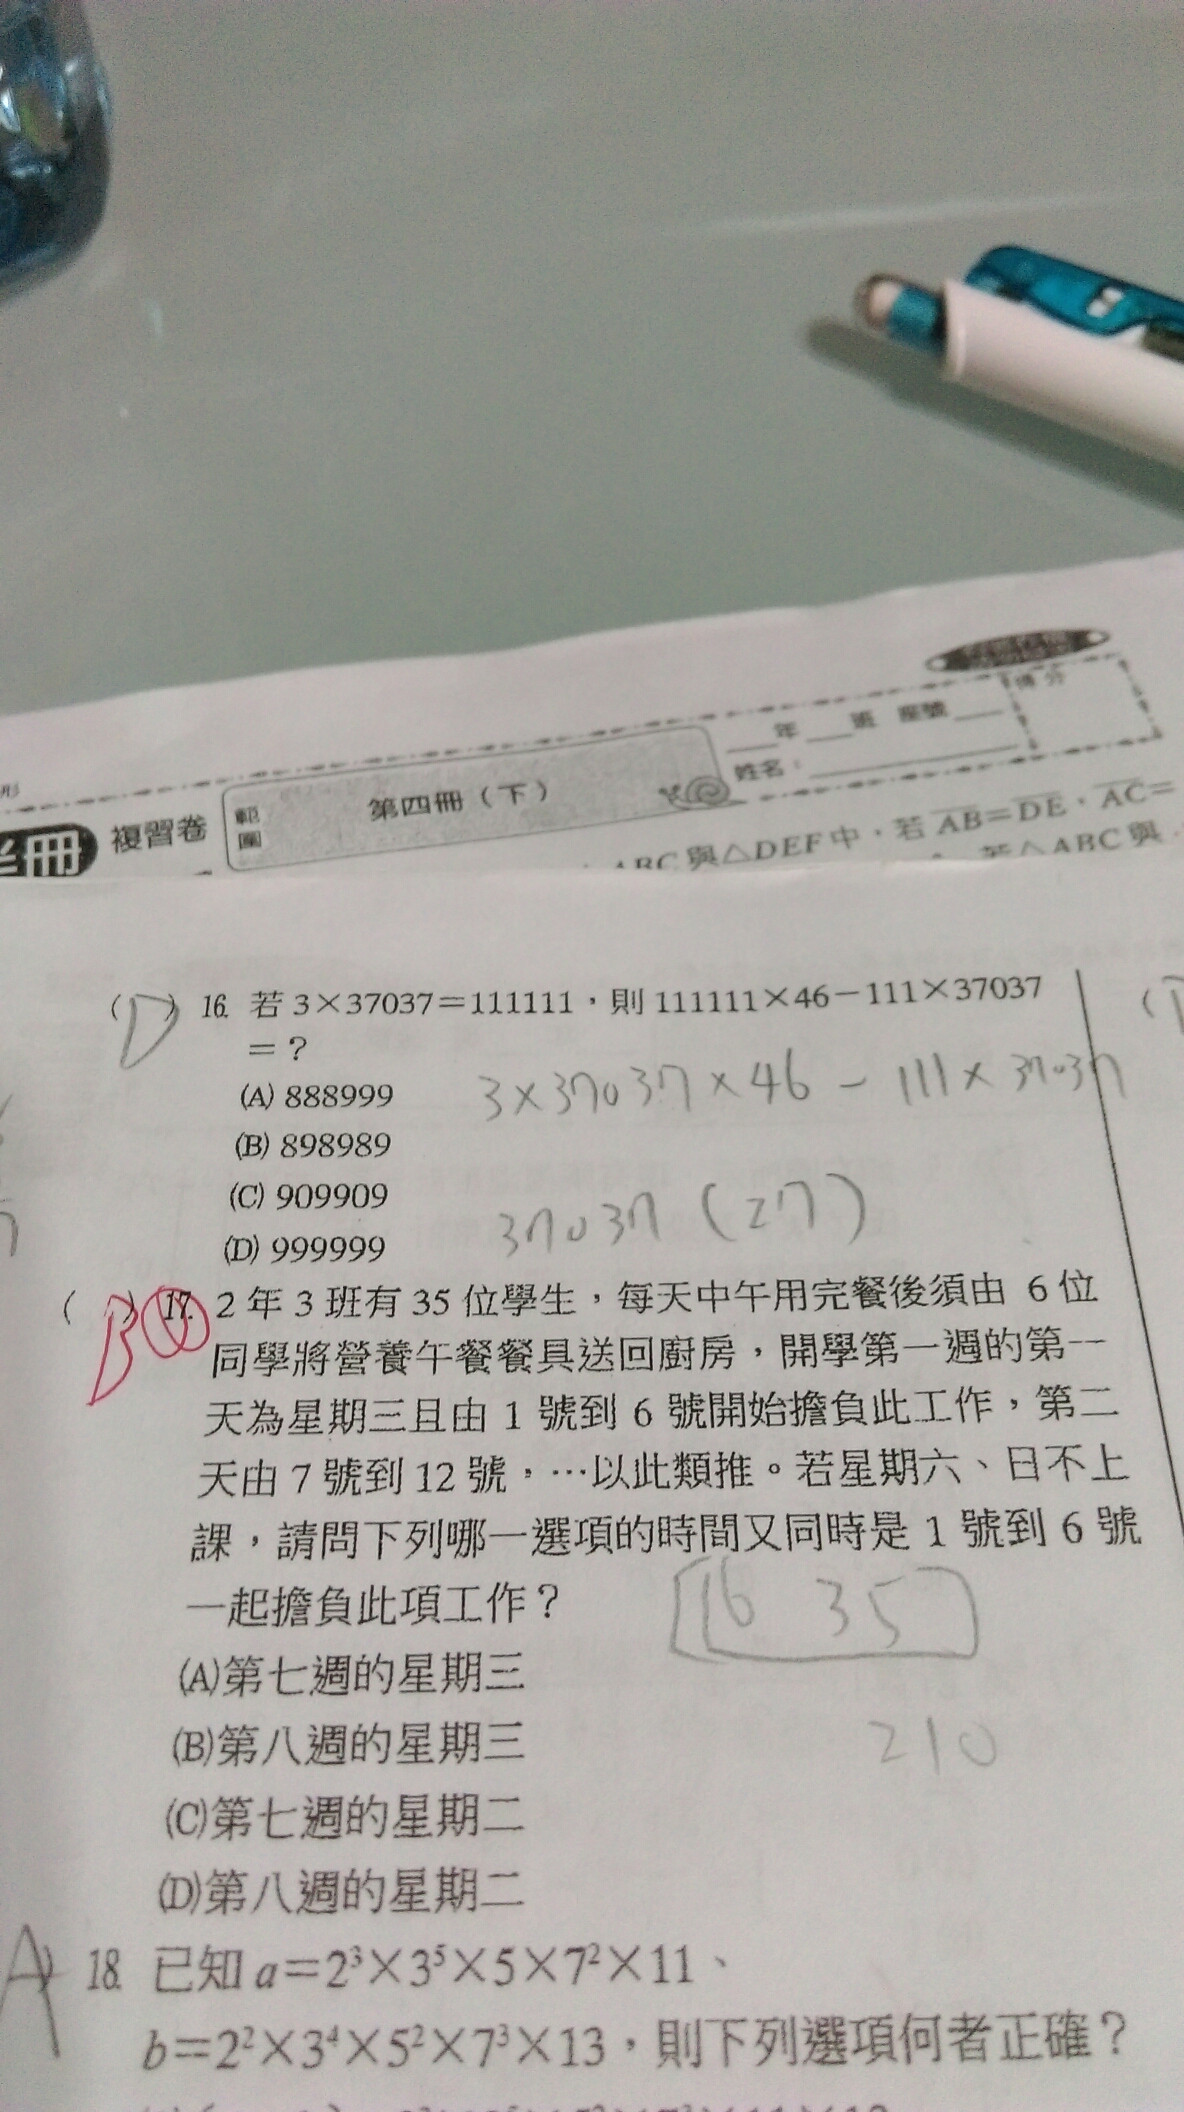 得分
年 班 座號
姓名：
形
半冊 複習卷 範圍 第四冊（下）
ABC與△DEF中，若AB=DE，AC=
若△ABC與
( D ) 16. 若 3×37037=111111，則 111111×46-111×37037
=？
(A) 888999
3×37037×46-111×37037
(B) 898989
(C) 909909
37037 (27)
(D) 999999
( B ) 17. 2 年 3 班有 35 位學生，每天中午用完餐後須由 6 位
同學將營養午餐餐具送回廚房，開學第一週的第一
天為星期三且由 1 號到 6 號開始擔負此工作，第二
天由 7 號到 12 號，…以此類推。若星期六、日不上
課，請問下列哪一選項的時間又同時是 1 號到 6 號
一起擔負此項工作？
[16 35]
(A)第七週的星期三
(B)第八週的星期三
210
(C)第七週的星期二
(D)第八週的星期二
A ) 18. 已知 a=2³×3⁵×5×7²×11、
b=2²×3⁴×5²×7³×13，則下列選項何者正確？